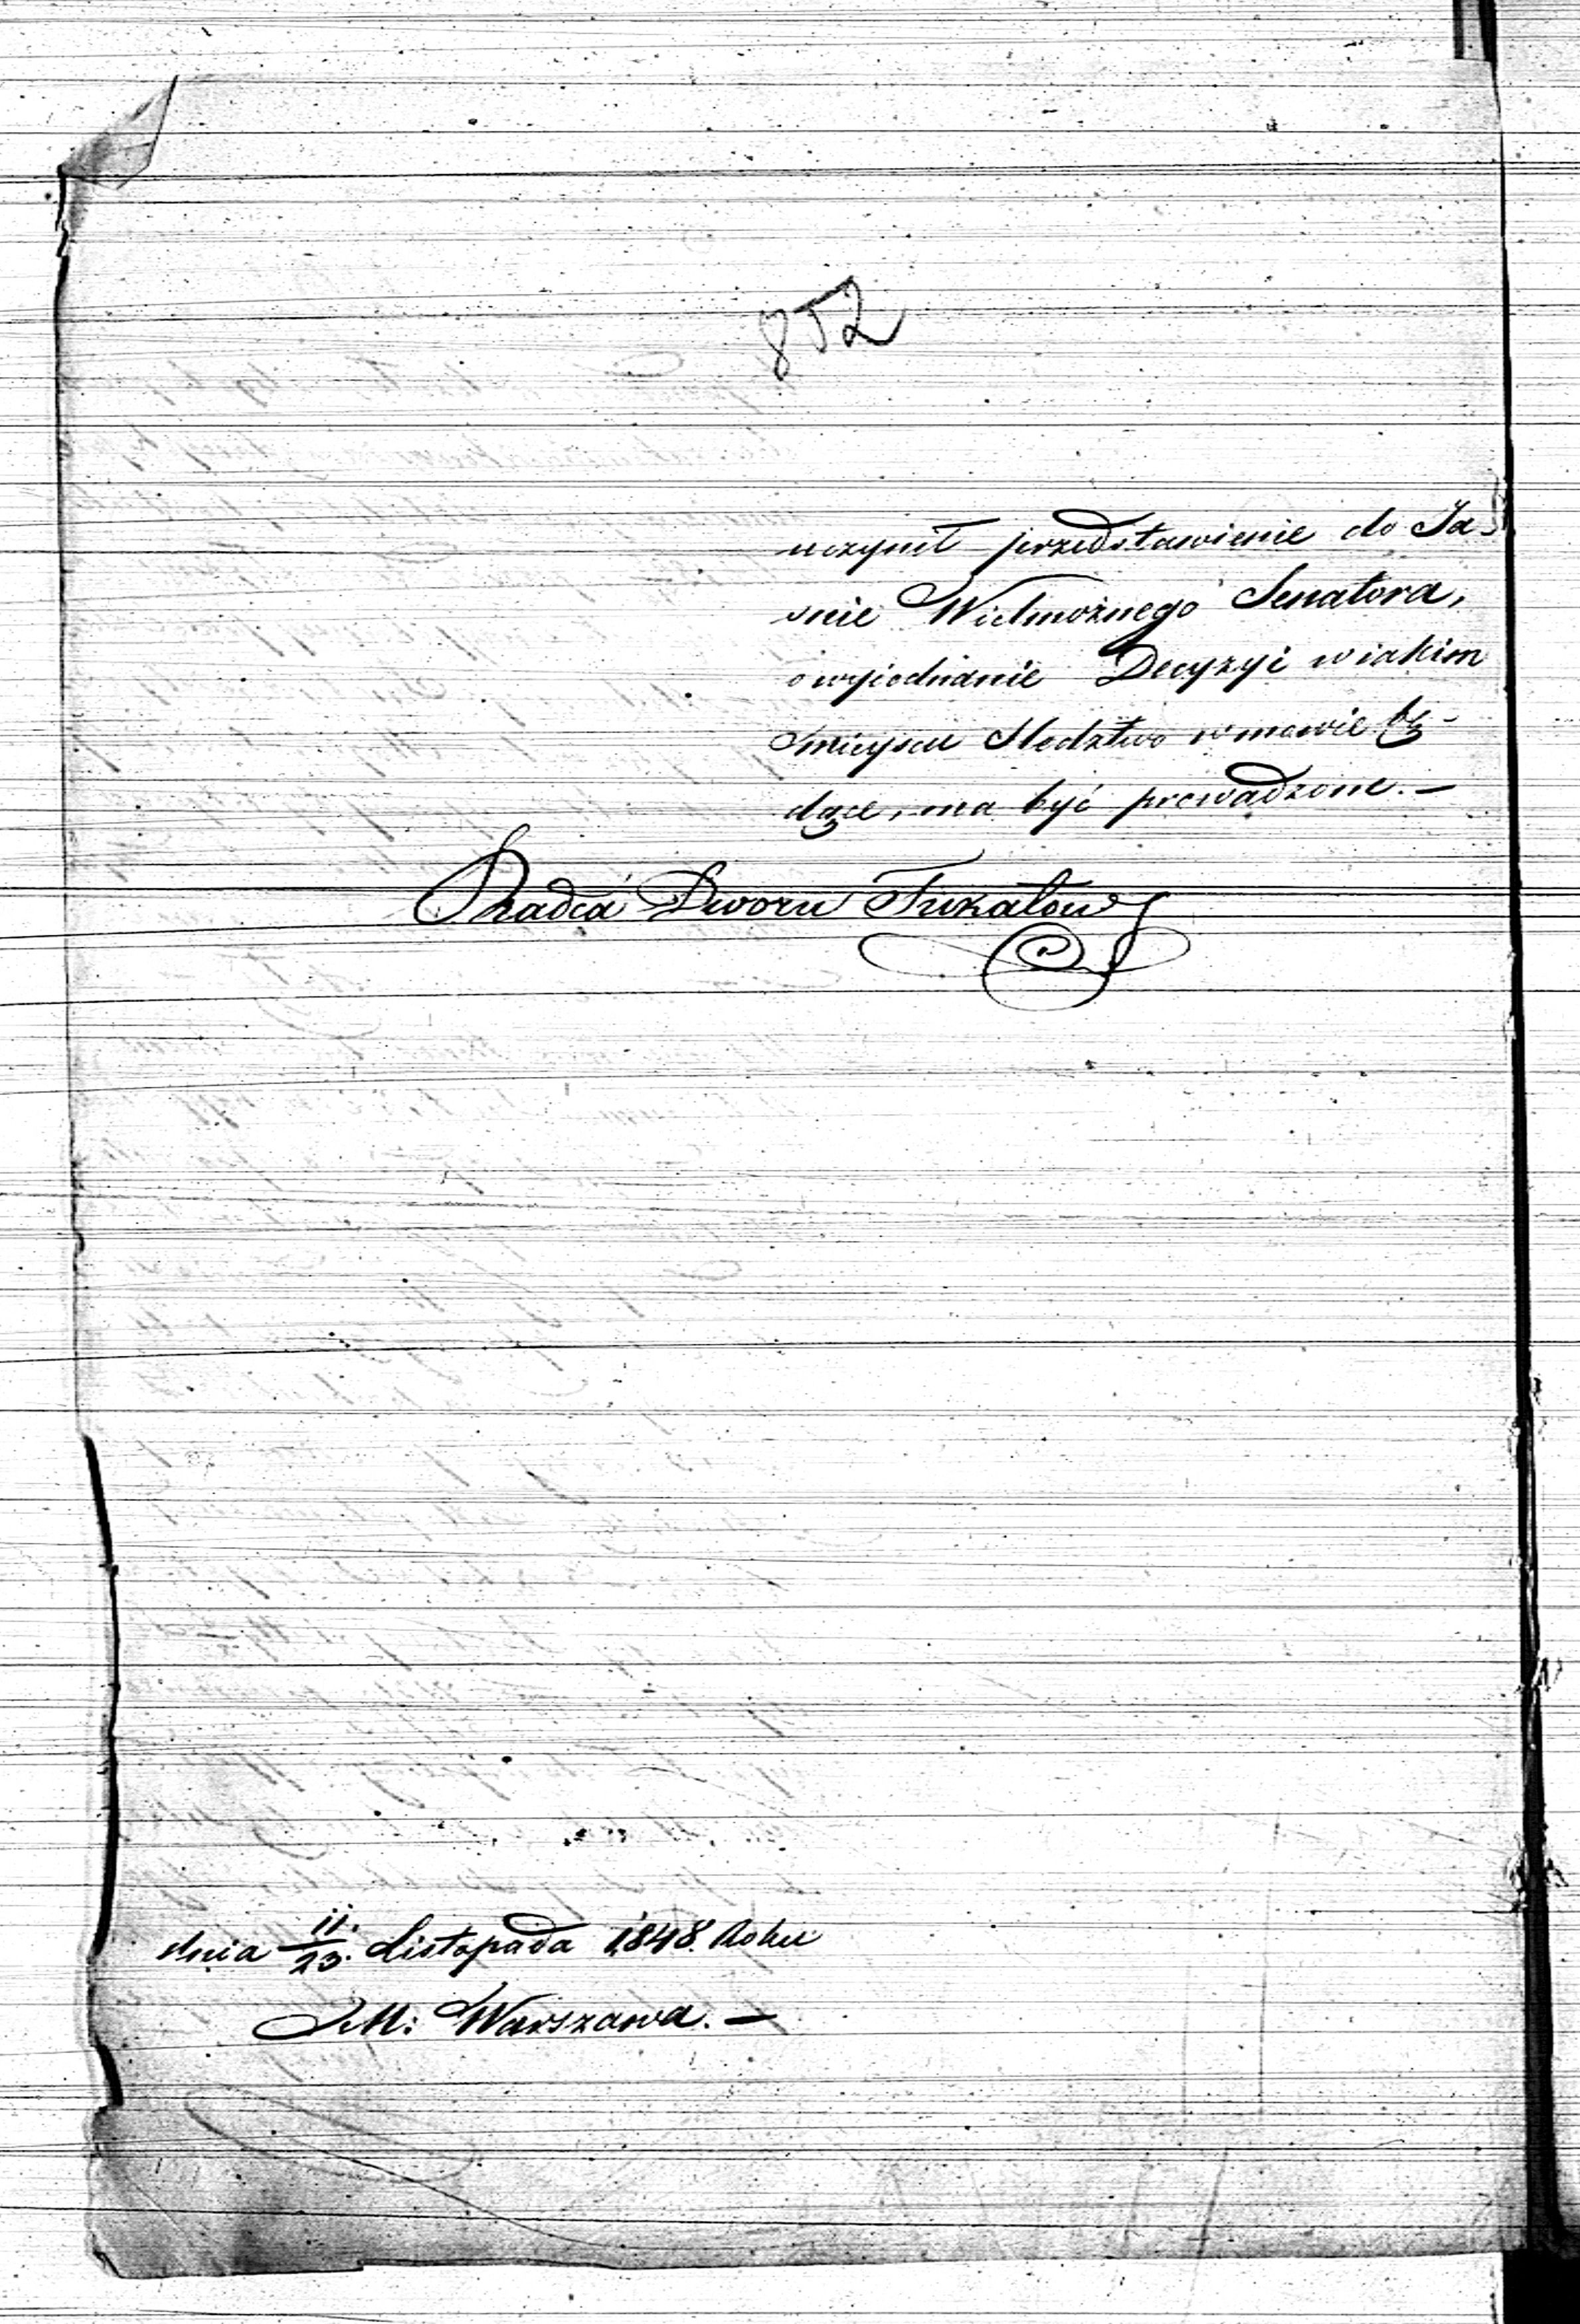 852
uczynił przedstawienie do Ja-
śnie Wielmożnego Senatora,
o wyiednanie Decyzyi w iakim
mieyscu śledztwo w mowie bę-
dące, ma być prowadzone. —
Radca Dworu
dnia 11/23. Listopada 1848. Roku
M: Warszawa. —